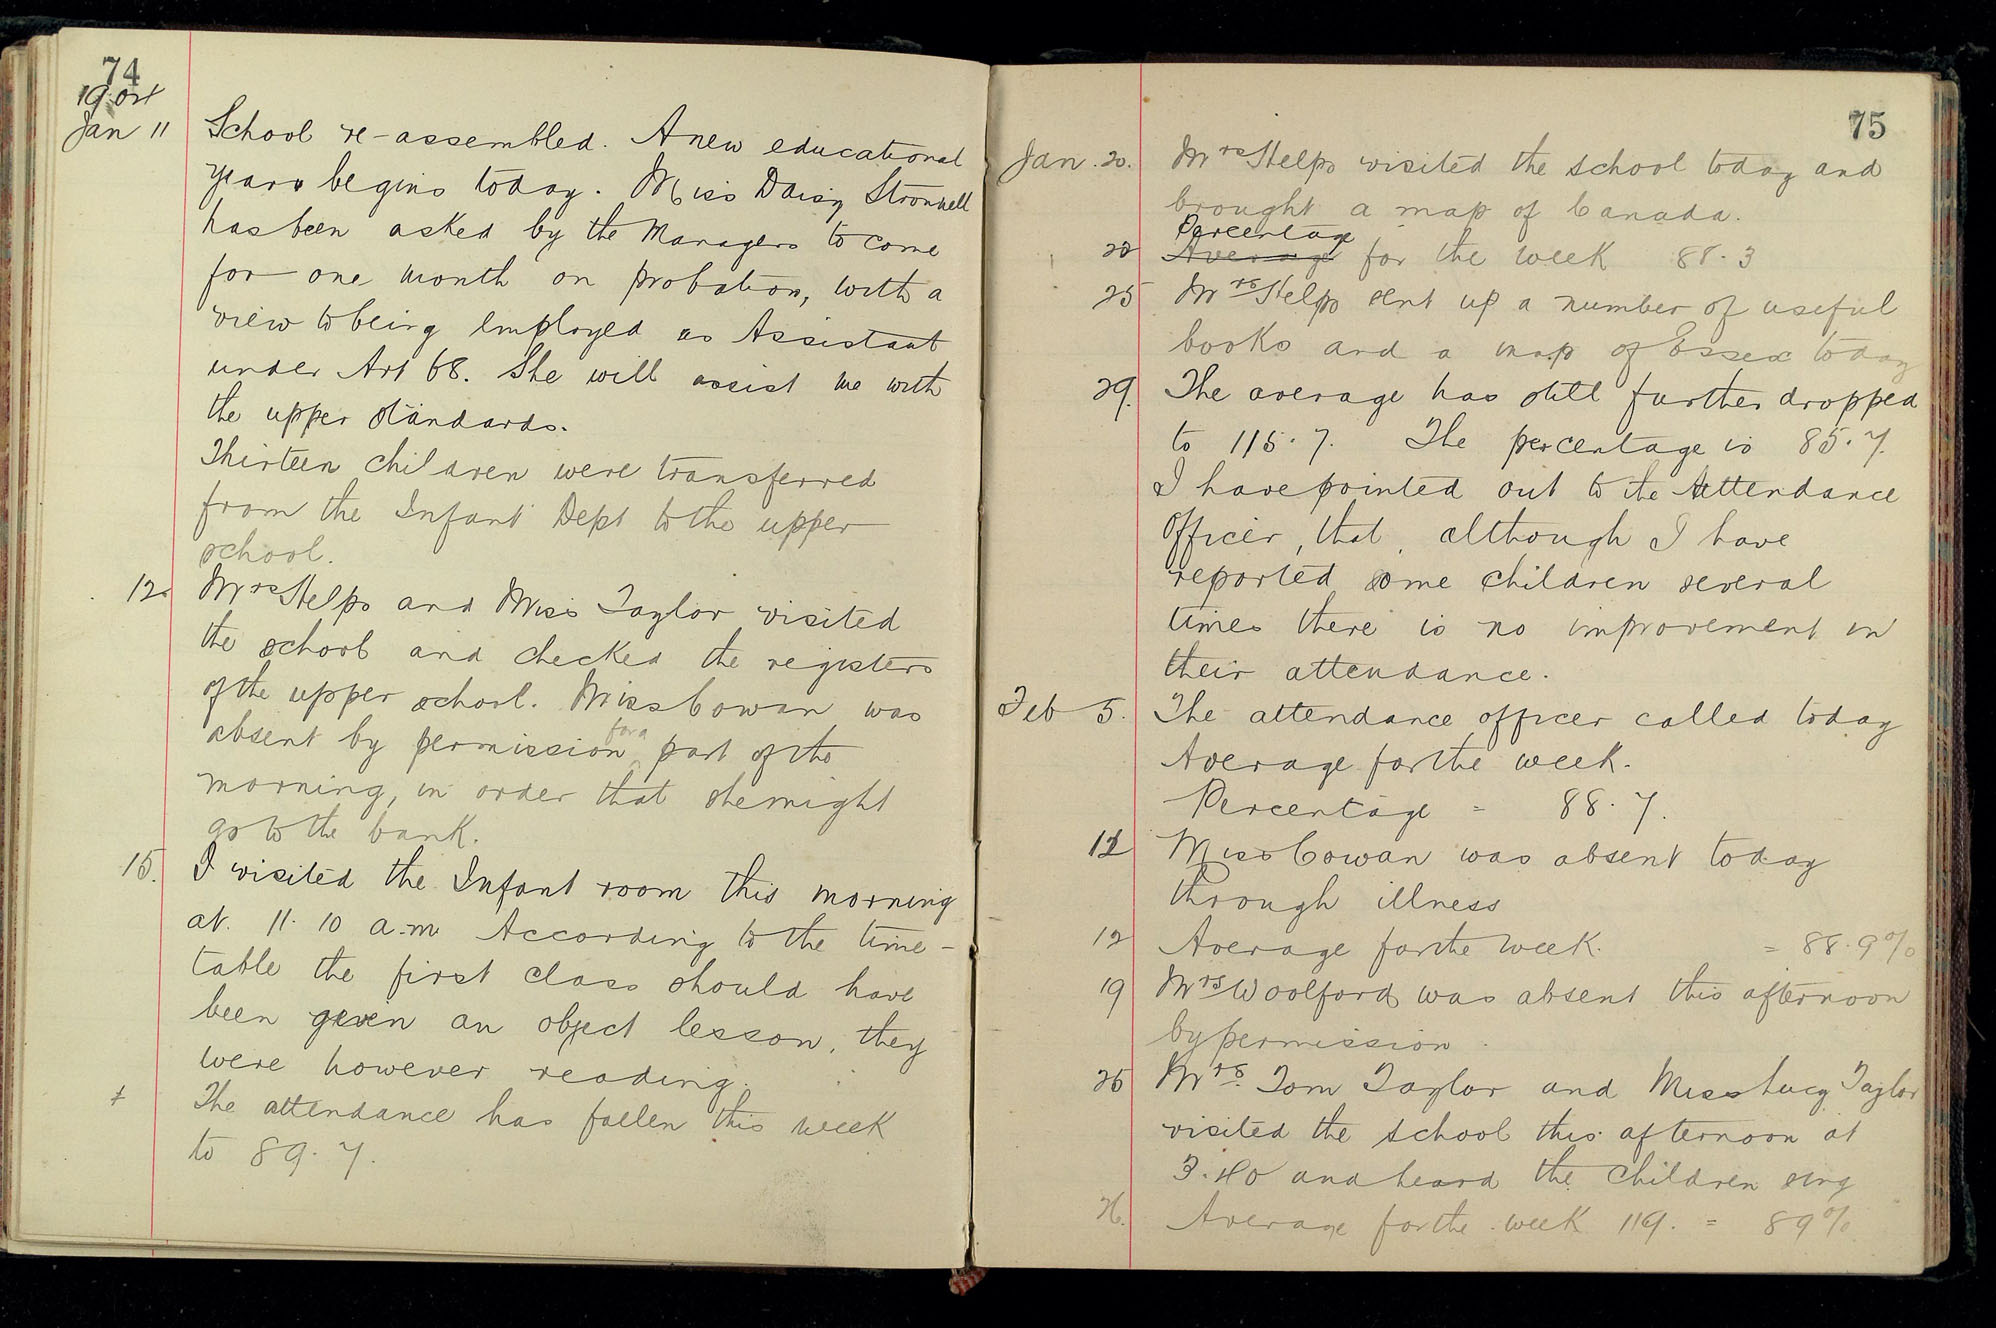 74
Jan 11 School re-assembled. A new educational
year begins today. Miss Daisy
has been asked by the Managers to come
for one month on probation, with a
view to being employed as Assistant
under Art 68. She will assist me with
the upper standards.
Thirteen children were transferred
from the Infant Dept to the upper
school.
12. Mrs Helps and Miss Taylor visited
the school and checked the registers
of the upper school. Miss Cowan was
absent by permission for a part of the
morning, in order that she might
go to the bank.
15. I visited the Infant room this morning
at 11.10 a.m. According to the time-
table the first class should have
been given an object lesson, they
were however reading.
The attendance has fallen this week
to 89.7.
75
Jan. 20. Mrs Helps visited the school today and
brought a map of Canada.
Percentage
22 Average for the week 88.3
25 Mrs Helps sent up a number of useful
books and a map of Essex today
29. The average has still further dropped
to 115.7. The percentage is 85.7.
I have pointed out to the Attendance
Officer, that, although I have
reported some children several
times there is no improvement in
their attendance.
Feb 5. The attendance officer called today
Average for the week.
Percentage = 88.7.
Miss Cowan was absent today
through illness
12 Average for the week. = 88.9%
19 Mrs Woolford was absent this afternoon
by permission.
25 Mrs. Tom Taylor and Miss Lucy Taylor
visited the school this afternoon at
3.40 and heard the children sing
26. Average for the week 119. = 89%